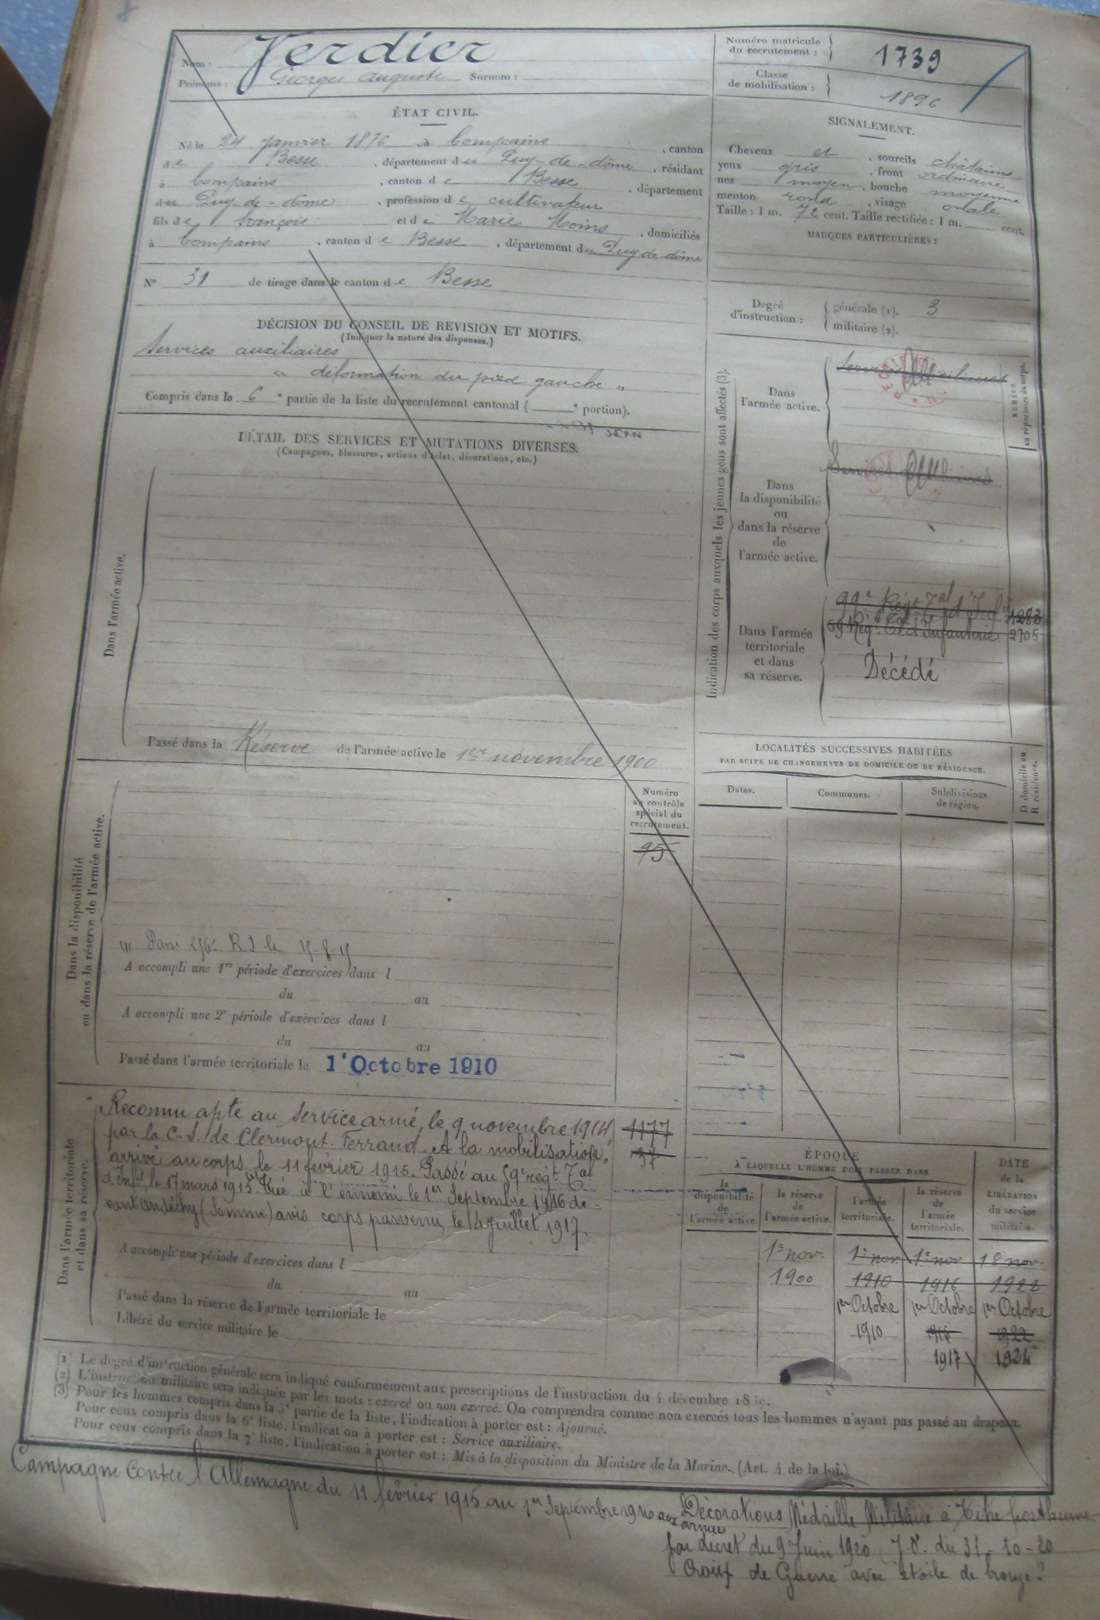 Nom : Verdier
Prénoms : Georges Auguste Surnom :
Numéro matricule
du recrutement : 1739
Classe
de mobilisation : 1896
ÉTAT CIVIL.
Né le 24 janvier 1876 à Compains, canton
de Besse, département du Puy-de-dôme, résidant
à Compains, canton de Besse, département
du Puy-de-dôme, profession de cultivateur
fils de François et de Marie Moins, domiciliés
à Compains, canton de Besse, département du Puy de dôme
N° 31 de tirage dans le canton de Besse
SIGNALEMENT.
Cheveux et, sourcils châtains
yeux gris, front ordinaire
nez moyen, bouche moyenne
menton rond, visage ovale
Taille : 1 m. 72 cent. Taille rectifiée : 1 m. cent.
MARQUES PARTICULIÈRES :
Degré
d'instruction :
générale (1). 3
militaire (2).
DÉCISION DU CONSEIL DE REVISION ET MOTIFS.
(Indiquer la nature des dispenses.)
Services auxiliaires
" déformation du pied gauche "
Compris dans la 6e partie de la liste du recrutement cantonal ( e portion).
DÉTAIL DES SERVICES ET MUTATIONS DIVERSES.
(Campagnes, blessures, actions d'éclat, décorations, etc.)
Dans l'armée active.
Passé dans la Réserve de l'armée active le 1er novembre 1900
Indication des corps auxquels les jeunes gens sont affectés (3).
Dans
l'armée active.
Services Auxiliaires
Dans
la disponibilité
ou
dans la réserve
de
l'armée active.
Services Auxiliaires
Dans l'armée
territoriale
et dans
sa réserve.
99e Régt Tal d'Inf 1283
59 Rég. Tal d'Infanterie 2705
Décédé
LOCALITÉS SUCCESSIVES HABITÉES
PAR SUITE DE CHANGEMENTS DE DOMICILE OU DE RÉSIDENCE.
Dates.
Communes.
Subdivisions
de région.
D domicile ou
R résidence.
Dans la disponibilité
ou dans la réserve de l'armée active.
Numéro
au contrôle
spécial du
recrutement.
95
A accompli une 1re période d'exercices dans l
du au
A accompli une 2e période d'exercices dans l
du au
Passé dans l'armée territoriale le 1er Octobre 1910
Dans l'armée territoriale
et dans sa réserve.
Reconnu apte au service armé, le 9 novembre 1914 1177
par la C.S. de Clermont-Ferrand. A la mobilisation, 37
arrivé au corps le 11 février 1915. Passé au 59e régt Tal
d'Inf. le 17 mars 1915. Tué à l'ennemi le 1er Septembre 1916 de-
vant (Somme) avis corps parvenu le 4 juillet 1917.
A accompli une période d'exercices dans l
du au
Passé dans la réserve de l'armée territoriale le
Libéré du service militaire le
ÉPOQUE
À LAQUELLE L'HOMME DOIT PASSER DANS
la
disponibilité
de
l'armée active.
la réserve
de
l'armée active.
l'armée
territoriale.
la réserve
de
l'armée
territoriale.
DATE
de la
LIBÉRATION
du service
militaire.
1er nov. 1er nov 1er nov 18 nov.
1900 1910 1916 1922
1er Octobre 1er Octobre 1er Octobre
1910 1916 1922
1917 1924
(1) Le degré d'instruction générale sera indiqué conformément aux prescriptions de l'instruction du 4 décembre
(2) L'instruction militaire sera indiquée par les mots : exercé ou non exercé. On comprendra comme non exercés tous les hommes n'ayant pas passé au drapeau.
(3) Pour les hommes compris dans la 5e partie de la liste, l'indication à porter est : Ajourné.
Pour ceux compris dans la 6e liste, l'indication à porter est : Service auxiliaire.
Pour ceux compris dans la 7e liste, l'indication à porter est : Mis à la disposition du Ministre de la Marine. (Art. 4 de la loi.)
Campagne contre l'Allemagne du 11 février 1915 au 1er Septembre 1916 aux armées
Décorations Médaille Militaire à titre posthume
par décret du 9 Juin 1920 J.O. du 31-10-20
Croix de Guerre avec étoile de bronze.